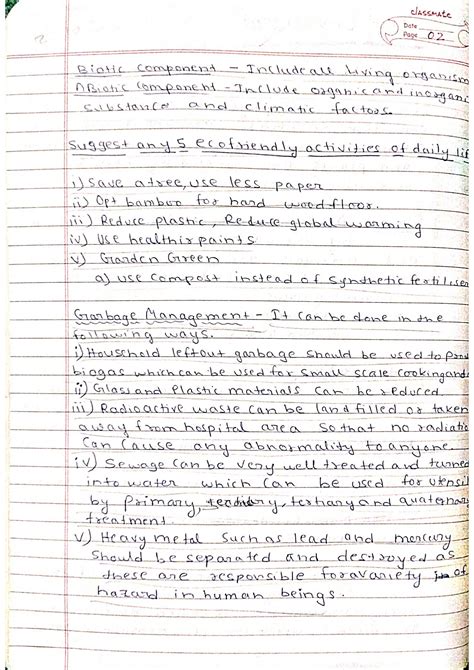 classmate
Date
Page 02
Biotic component - Include all living organism
ABiotic component - Include organic and inorgani
substance and climatic factors.
Suggest any 5 ecofriendly activities of daily lif
i) Save a tree, use less paper
ii) Opt bamboo for hard wood floor.
iii) Reduce plastic, Reduce global warming
iv) Use healthir paints
v) Garden Green
a) use compost instead of synthetic fertiliser
Garbage Management - It can be done in the
following ways.
i) Household leftout garbage should be used to prod
biogas which can be used for small scale cooking and
ii) Glass and plastic materials can be reduced.
iii) Radioactive waste can be land filled or taken
away from hospital area so that no radiatio
can cause any abnormality to anyone.
iv) Sewage can be very well treated and turned
into water which can be used for utensil
by primary, tertiary and quaternary
treatment
v) Heavy metal such as lead and mercury
should be separated and destroyed as
these are responsible for a variety of
hazard in human beings.